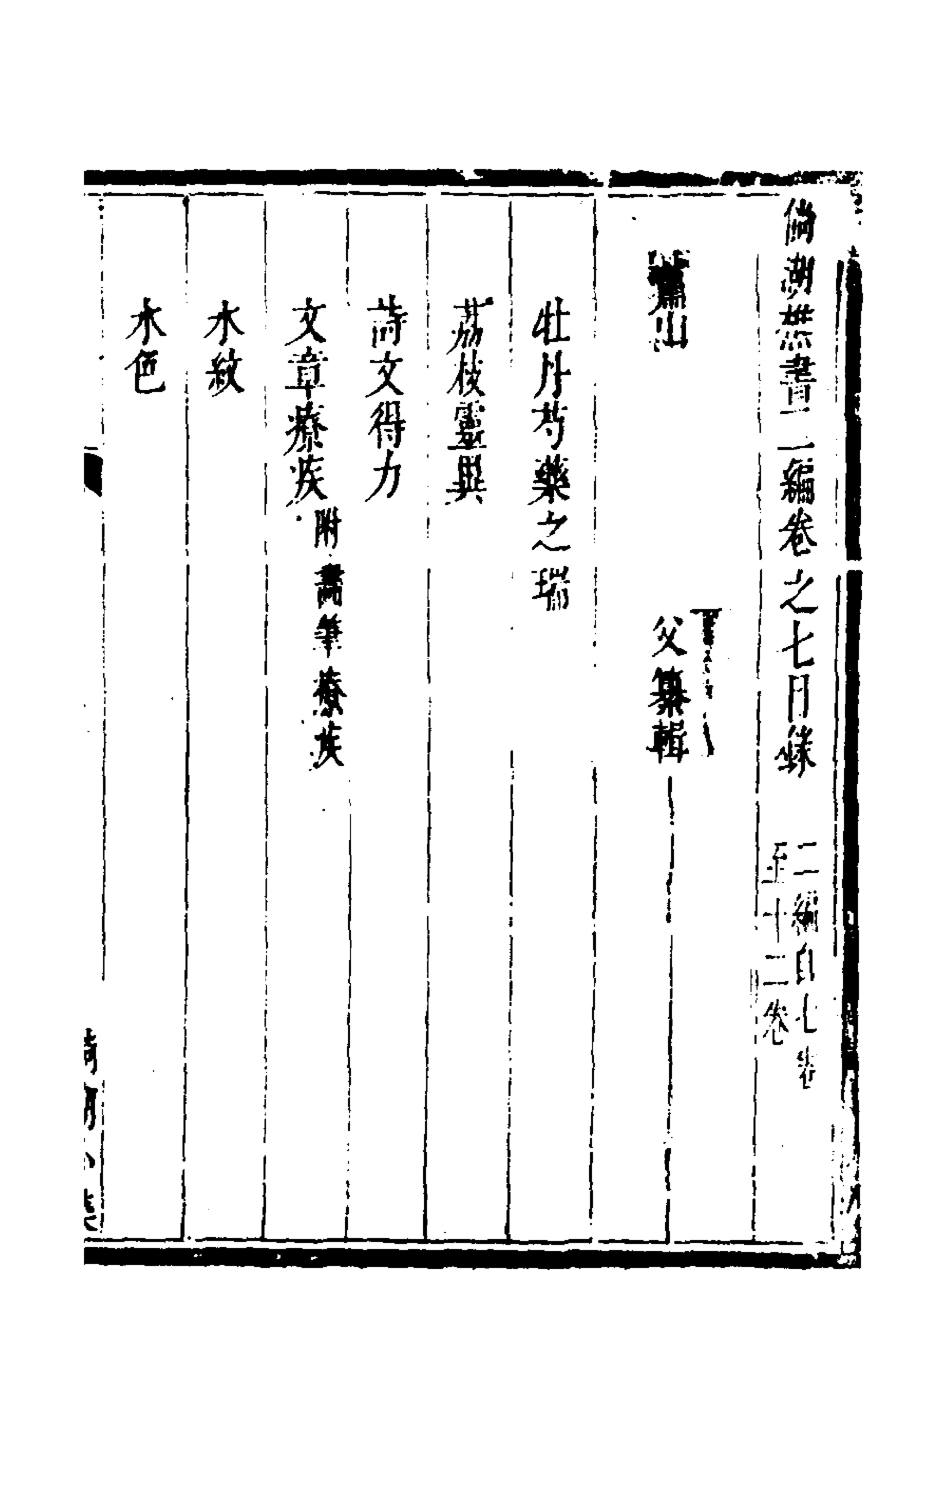 倘湖樵書二編卷之七目錄 二編自七卷
至十二卷
蕭山 父纂輯
牡丹芍藥之瑞
荔枝靈異
詩文得力
文章療疾 附畵筆療疾
水紋
水色
倘湖小築